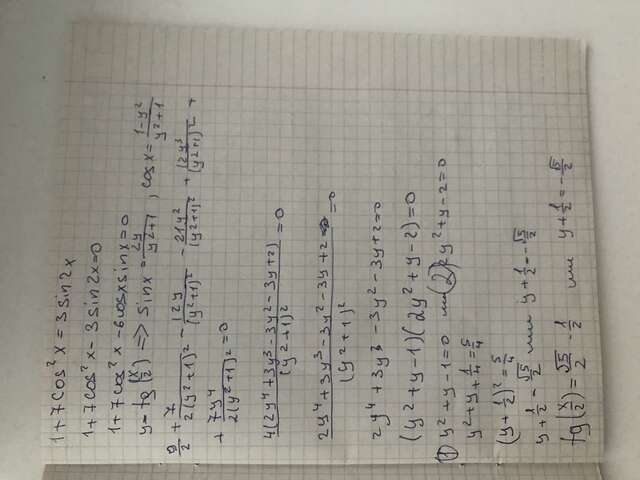 1+7cos²x = 3sin2x
1+7cos²x - 3sin2x=0
1+7cos²x - 6cosxsinx=0
y=tg(x/2) => sinx = 2y/(y²+1), cosx = (1-y²)/(y²+1)
9/2 + 7/(2(y²+1)²) - 12y/(y²+1)² - 21y²/(y²+1)² + 12y³/(y²+1)² +
+ 7y⁴/(2(y²+1)²) = 0
4(2y⁴+3y³-3y²-3y+2)/(y²+1)² = 0
(2y⁴+3y³-3y²-3y+2)/(y²+1)² = 0
2y⁴+3y³-3y²-3y+2=0
(y²+y-1)(2y²+y-2)=0
1) y²+y-1=0 или 2) 2y²+y-2=0
y²+y+1/4=5/4
(y+1/2)²=5/4
y+1/2=√5/2 или y+1/2=-√5/2
tg(x/2)=√5/2 - 1/2 или y+1/2=-√5/2